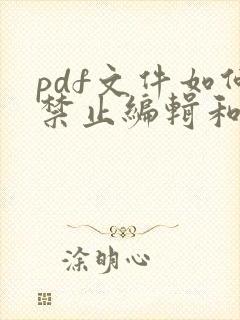 pdf文件如何
禁止编辑和
涂明心